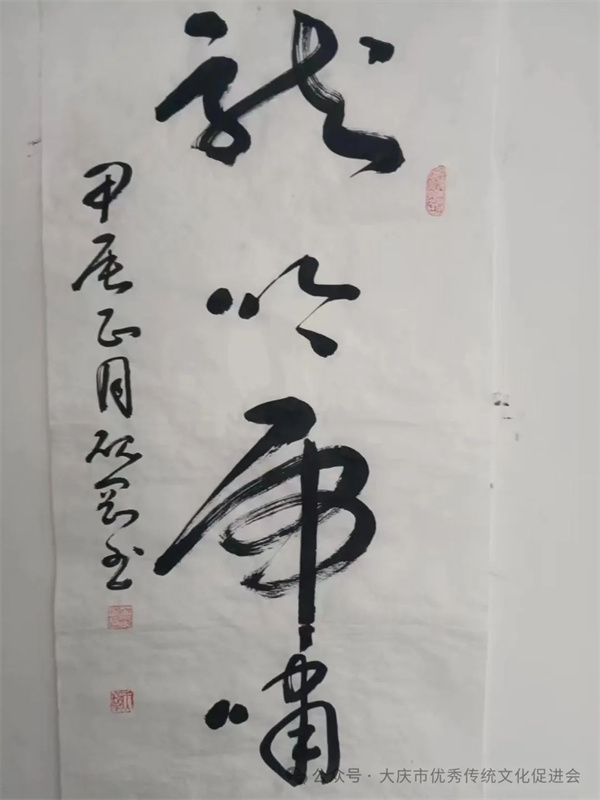 龙吟虎啸
甲辰正月
书
公众号·大庆市优秀传统文化促进会